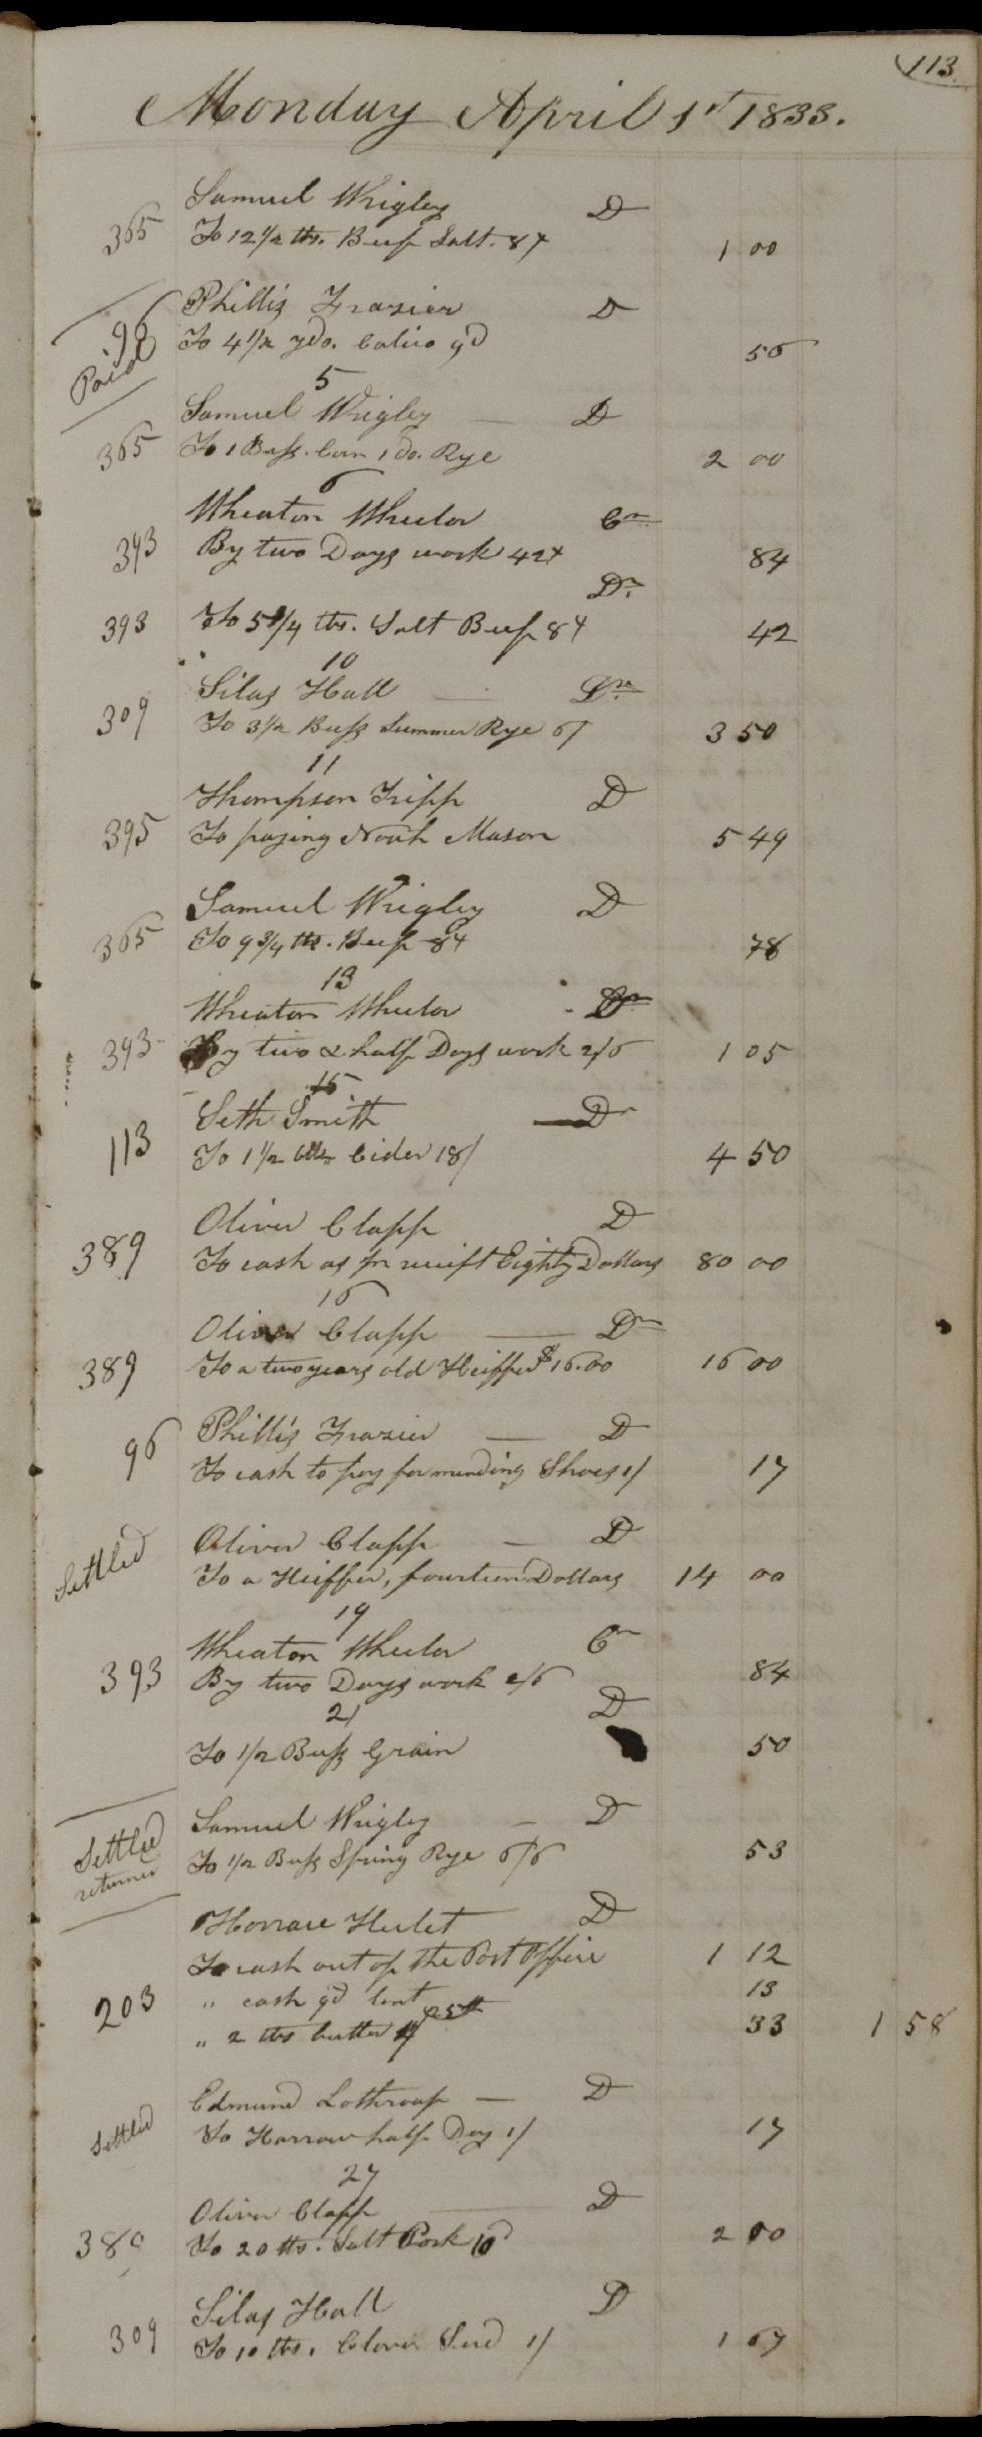 113
Monday April 1st 1833.
Samuel Wrigley D
365 To 12 1/2 lbs. Beef Salt. 8 1 00
Phillis Frazier D
96 Paid To 4 1/2 yds. Calico 9d 56
5
Samuel Wrigley D
365 To 1 Bush. Corn 1 do. Rye 2 00
6
Wheaton Wheelor Cr
393 By two Days work 42 84
Dr.
393 To 5 1/4 lbs. Salt Beef 8 42
10
Silas Hall Dr
309 To 3 1/2 Bush Summer Rye 6/ 3 50
11
Thompson Tripp D
395 To paying Noah Mason 5 49
Samuel Wrigley D
365 To 9 3/4 lbs. Beef 8 78
13
Wheaton Wheelor
393 By two & half Days work 2/6 1 05
15
Seth Smith Dr
113 To 1 1/2 bbls Cider 18/ 4 50
Oliver Clapp D
389 To cash as pr receipt Eighty Dollars 80 00
16
Oliver Clapp Dr
389 To a two years old Heiffer $16.00 16 00
Phillis Frazier D
96 To cash to pay for mending Shoes 1/ 17
Oliver Clapp D
Settled To a Heiffer, fourteen Dollars 14 00
19
Wheaton Wheelor Cr
393 By two Days work 2/6 84
21 D
To 1/2 Bush Grain 50
Samuel Wrigley D
Settled returned To 1/2 Bush Spring Rye 6/6 53
Horrace Hulet D
To cash out of the Post Office 1 12
203 " cash 9d lent 13
" 2 lbs butter 33 1 58
Edmund Lothroop D
Settled To Harrow half Day 1/ 17
27
Oliver Clapp D
389 To 20 lbs. Salt Pork 10d 2 00
Silas Hall D
309 To 10 lbs. Clover Seed 1/ 1 67